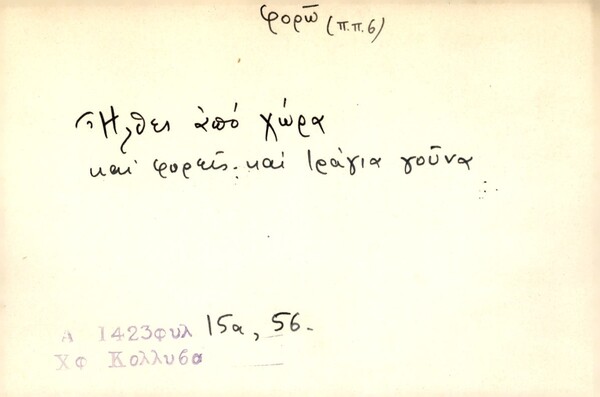 φορῶ (π.π. 6)
Ἦλθει ἀπό χώρα
καί φορεῖ. καί τράγια γοῦνα
Α 1423φυλ 15α, 56.
Χφ Κολλυβα